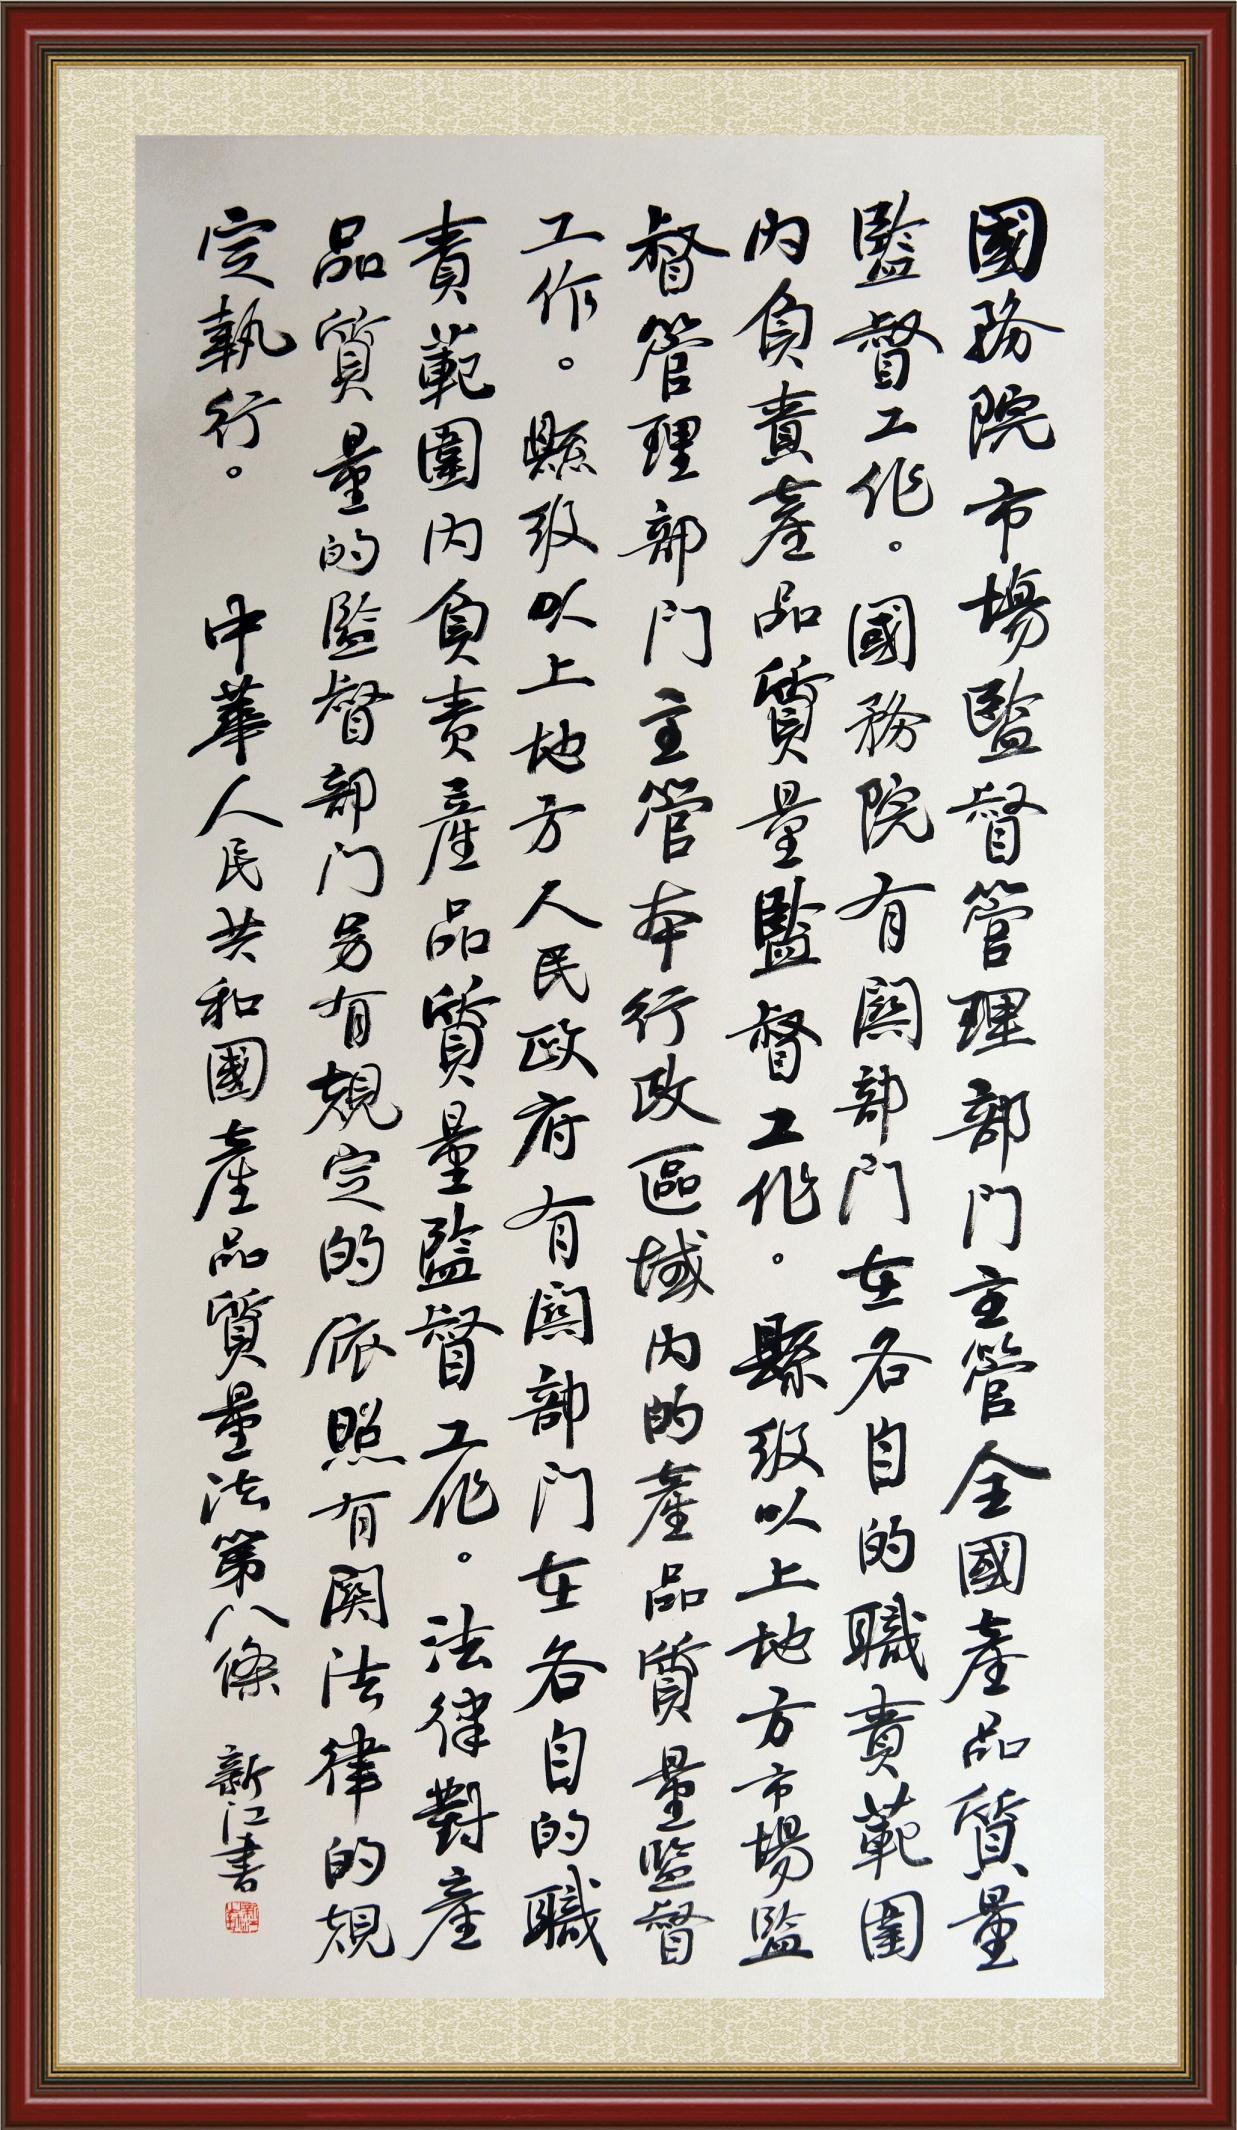 國務院市場監督管理部门主管全國產品質量
監督工作。國務院有関部门在各自的職責範圍
内負責產品質量監督工作。縣级以上地方市場監
督管理部门主管本行政區域内的產品質量監督
工作。縣级以上地方人民政府有関部门在各自的職
責範圍内負責產品質量監督工作。法律對產
品質量的監督部门另有規定的依照有関法律的規
定執行。 中華人民共和國產品質量法第八條 新江書